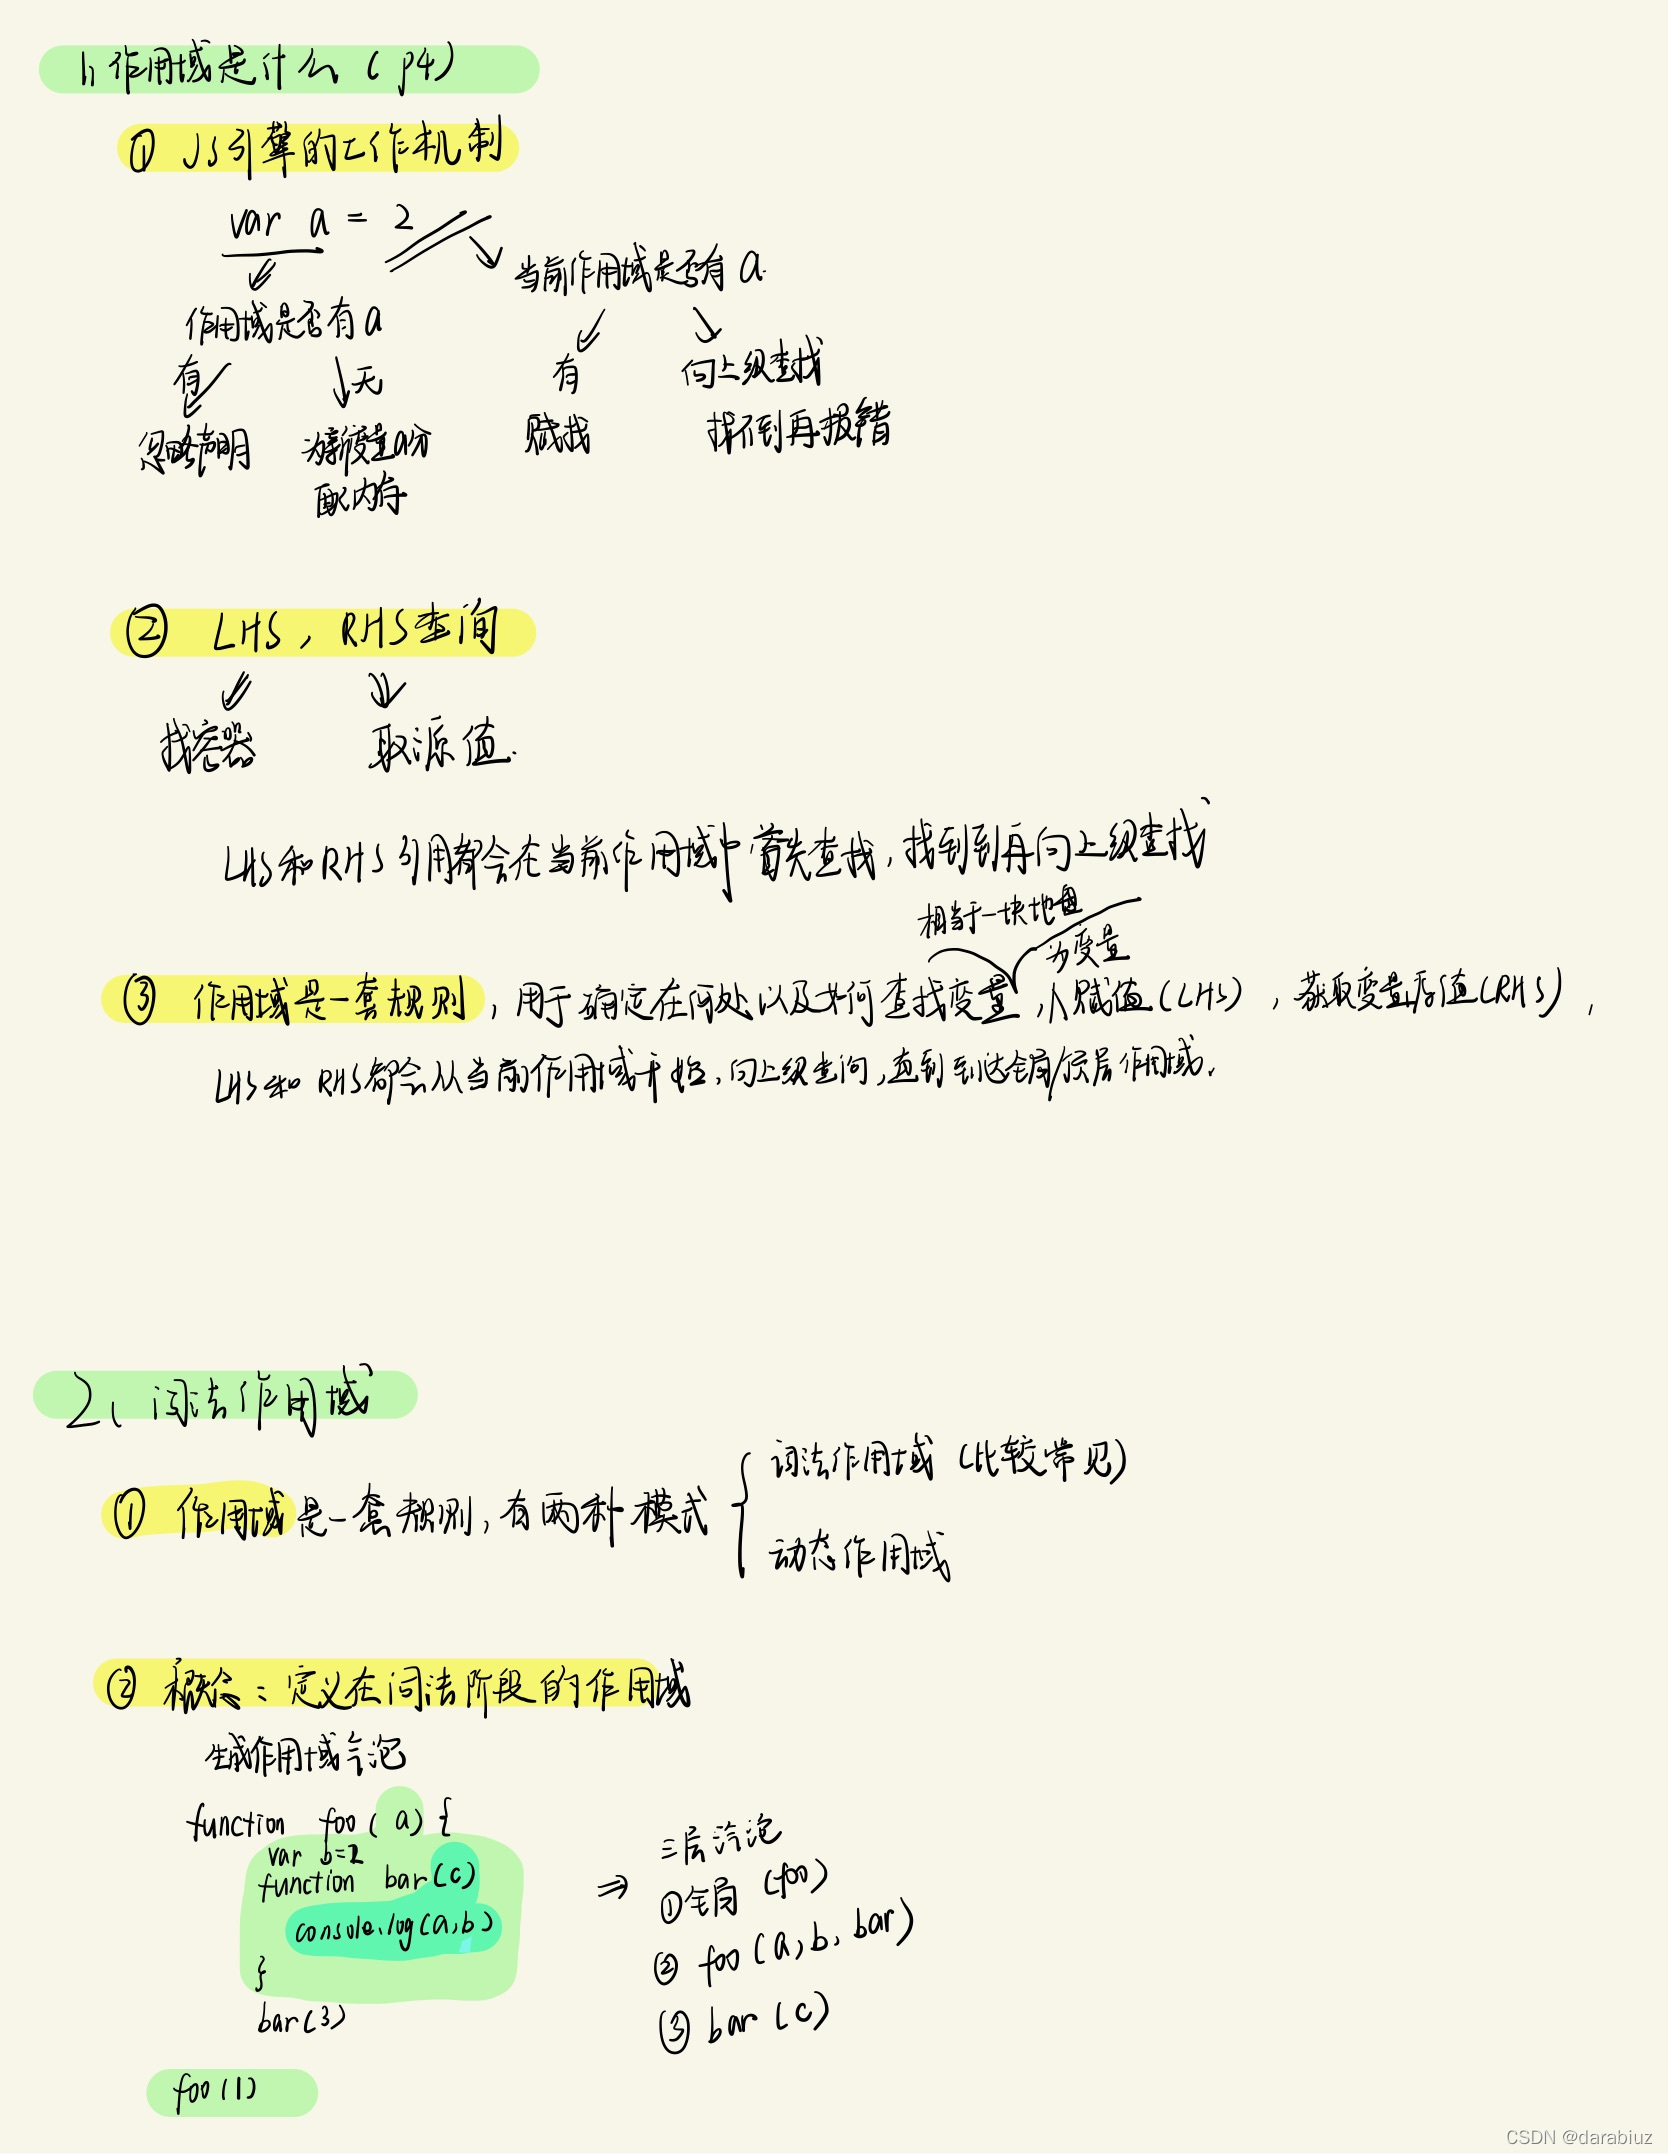 1、作用域是什么（p4）
① JS引擎的工作机制
var a = 2
当前作用域是否有a.
作用域是否有a
有 无 有 向上级查找
忽略声明 为新变量a分 赋找 找不到再报错
配内存
② LHS，RHS查询
找容器 取源值.
LHS和RHS引用都会在当前作用域中首先查找，找到到再向上级查找
相当于一块地盘
为变量
③ 作用域是一套规则，用于确定在何处以及如何查找变量，赋值（LHS），获取变量值（RHS），
LHS和RHS都会从当前作用域开始，向上级查询，直到到达全局/顶层作用域.
2、词法作用域
① 作用域是一套规则，有两种模式
词法作用域（比较常见）
动态作用域
② 概念：定义在词法阶段的作用域
生成作用域气泡
function foo(a){
var b=2
function bar(c)
console.log(a,b)
}
bar(3)
foo(1)
⇒ 三层气泡
①全局（foo）
② foo（a,b,bar）
③ bar（c）
CSDN @darabiuz